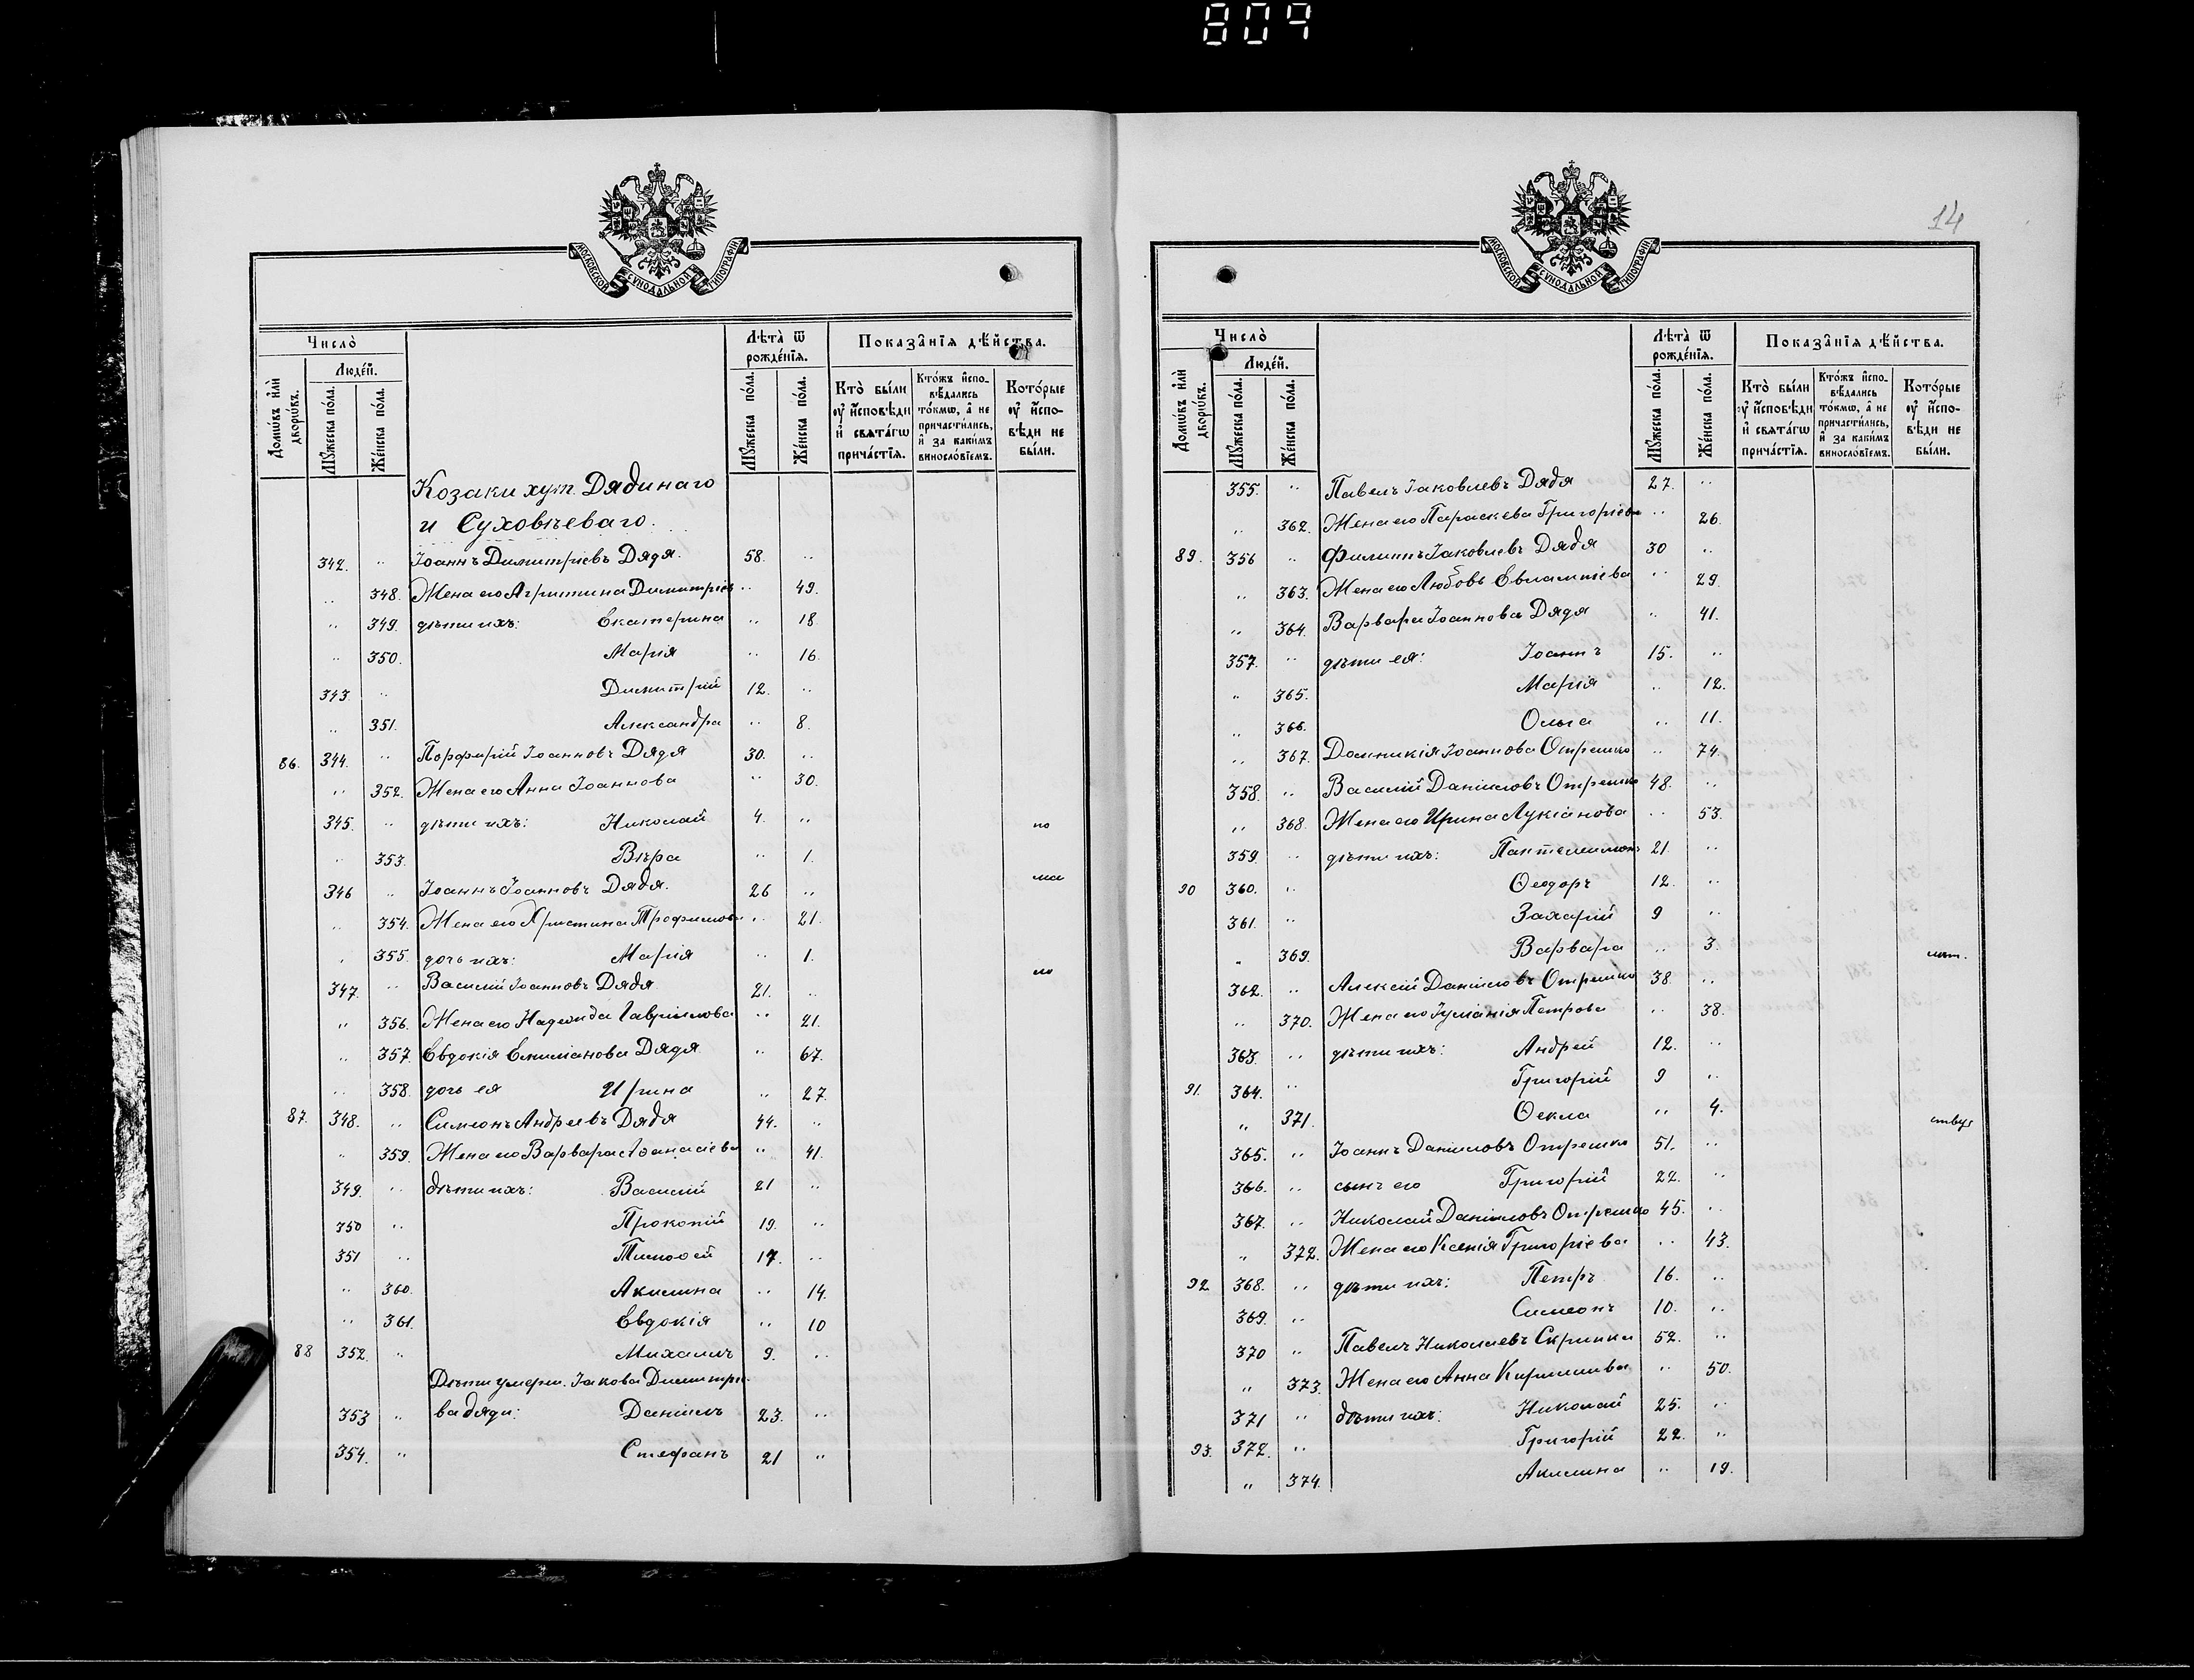 809
МОСКОВСКОЙ СѴНОДАЛЬНОЙ ТИПОГРАФІИ
Число̀
Людéй.
Домѡ́въ и҆лѝ дворѡ́въ.
Мꙋ́жеска по́ла.
Же́нска по́ла.
Лѣта̀ ѿ рожде́нїѧ.
Мꙋ́жеска по́ла.
Же́нска по́ла.
Показа̑нїѧ дѣ́йства.
Кто̀ бы́ли ᲂу҆ и҆́сповѣди и҆ свѧта́гѡ прича́стїѧ.
Кто́жъ и҆спо-вѣ́дались то́кмѡ, а҆ не причасти́лись, и҆ за каки́мъ винослóвїемъ.
Кото́рые ᲂу҆ и҆́спо-вѣди не бы́ли.
Козаки хут. Дядинаго
и Суховѣеваго.
342. " Іоаннъ Димитріевъ Дядя. 58. "
" 348. Жена его Агрипина Димитріев " 49.
" 349. дѣти ихъ: Екатерина " 18
" 350. Марія " 16.
343 " Димитрій 12. "
" 351. Александра " 8.
86. 344. " Порфирій Іоанновъ Дядя 30. "
" 352. Жена его Анна Іоаннова " 30.
345. " дѣти ихъ: Николай 4. " по
" 353. Вѣра " 1.
346 " Іоаннъ Іоанновъ Дядя. 26 "
" 354. Жена его Христина Трофимова " 21.
" 355. дочь ихъ: Марія " 1.
347. " Василій Іоанновъ Дядя 21. "
" 356. Жена его Надежда Гавриилова " 21.
" 357. Евдокія Емиліанова Дядя " 67.
" 358. дочь ея Ирина " 27.
87. 348. " Симеонъ Андреевъ Дядя 44. "
" 359. Жена его Варвара Аѳанасіева " 41.
349. " дѣти ихъ: Василій 21 "
350 " Прокопій 19. "
351 " Тимоѳей 17. "
" 360. Акилина " 14.
" 361. Евдокія " 10
88 352. " Михаилъ 9. "
Дѣти умерш. Іакова Димитріе-
353 " ва Дяди: Даніилъ 23. "
354. " Стефанъ 21 "
14
МОСКОВСКОЙ СѴНОДАЛЬНОЙ ТИПОГРАФІИ
Число̀
Людéй.
Домѡ́въ и҆лѝ дворѡ́въ.
Мꙋ́жеска по́ла.
Же́нска по́ла.
Лѣта̀ ѿ рожде́нїѧ.
Мꙋ́жеска по́ла.
Же́нска по́ла.
Показа̑нїѧ дѣ́йства.
Кто̀ бы́ли ᲂу҆ и҆́сповѣди и҆ свѧта́гѡ прича́стїѧ.
Кто́жъ и҆спо-вѣ́дались то́кмѡ, а҆ не причасти́лись, и҆ за каки́мъ винослóвїемъ.
Кото́рые ᲂу҆ и҆́спо-вѣди не бы́ли.
355. " Павелъ Іаковлевъ Дядя 27. "
" 362. Жена его Параскева Григоріева " 26.
89. 356 " Филиппъ Іаковлевъ Дядя 30 "
" 363. Жена его Любовь Евлампіева " 29.
" 364. Варвара Іоаннова Дядя " 41.
357. " дѣти ея: Іоаннъ 15. "
" 365. Марія " 12.
" 366. Ольга " 11.
" 367. Домникія Іоаннова Отрешко " 74.
358. " Василій Даніиловъ Отрешко 48. "
" 368. Жена его Ирина Лукіанова " 53.
359. " дѣти ихъ: Пантелеимонъ 21. "
90 360. " Ѳеодоръ 12. "
361. " Захарій 9 "
" 369. Варвара " 3.
362. " Алексій Даніиловъ Отрешко 38. "
" 370. Жена его Іуліанія Петрова " 38.
363. " дѣти ихъ: Андрей 12. "
91. 364. " Григорій 9 "
" 371. Ѳекла " 4.
365. " Іоаннъ Даніиловъ Отрешко 51. "
366. " сынъ его Григорій 22. "
367. " Николай Даніиловъ Отрешко 45. "
" 372. Жена его Ксенія Григоріева " 43.
92 368. " дѣти ихъ: Петръ 16. "
369. " Симеонъ 10. "
370 " Павелъ Николаевъ Скрипка 52. "
" 373. Жена его Анна Кириллова " 50.
371 " дѣти ихъ: Николай 25. "
93. 372. " Григорій 22. "
" 374. Акилина " 19.